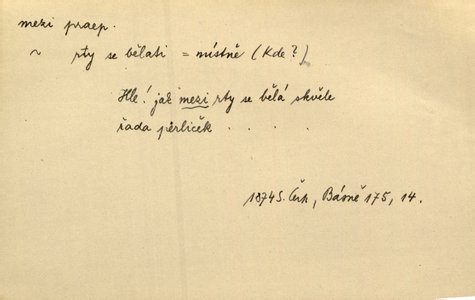 mezi praep.
~ rty se bělati = místně (Kde?)
Hle! jak mezi rty se bělá skvěle
řada pērliček . . . .
1874 S. Čech, Básně 175, 14.